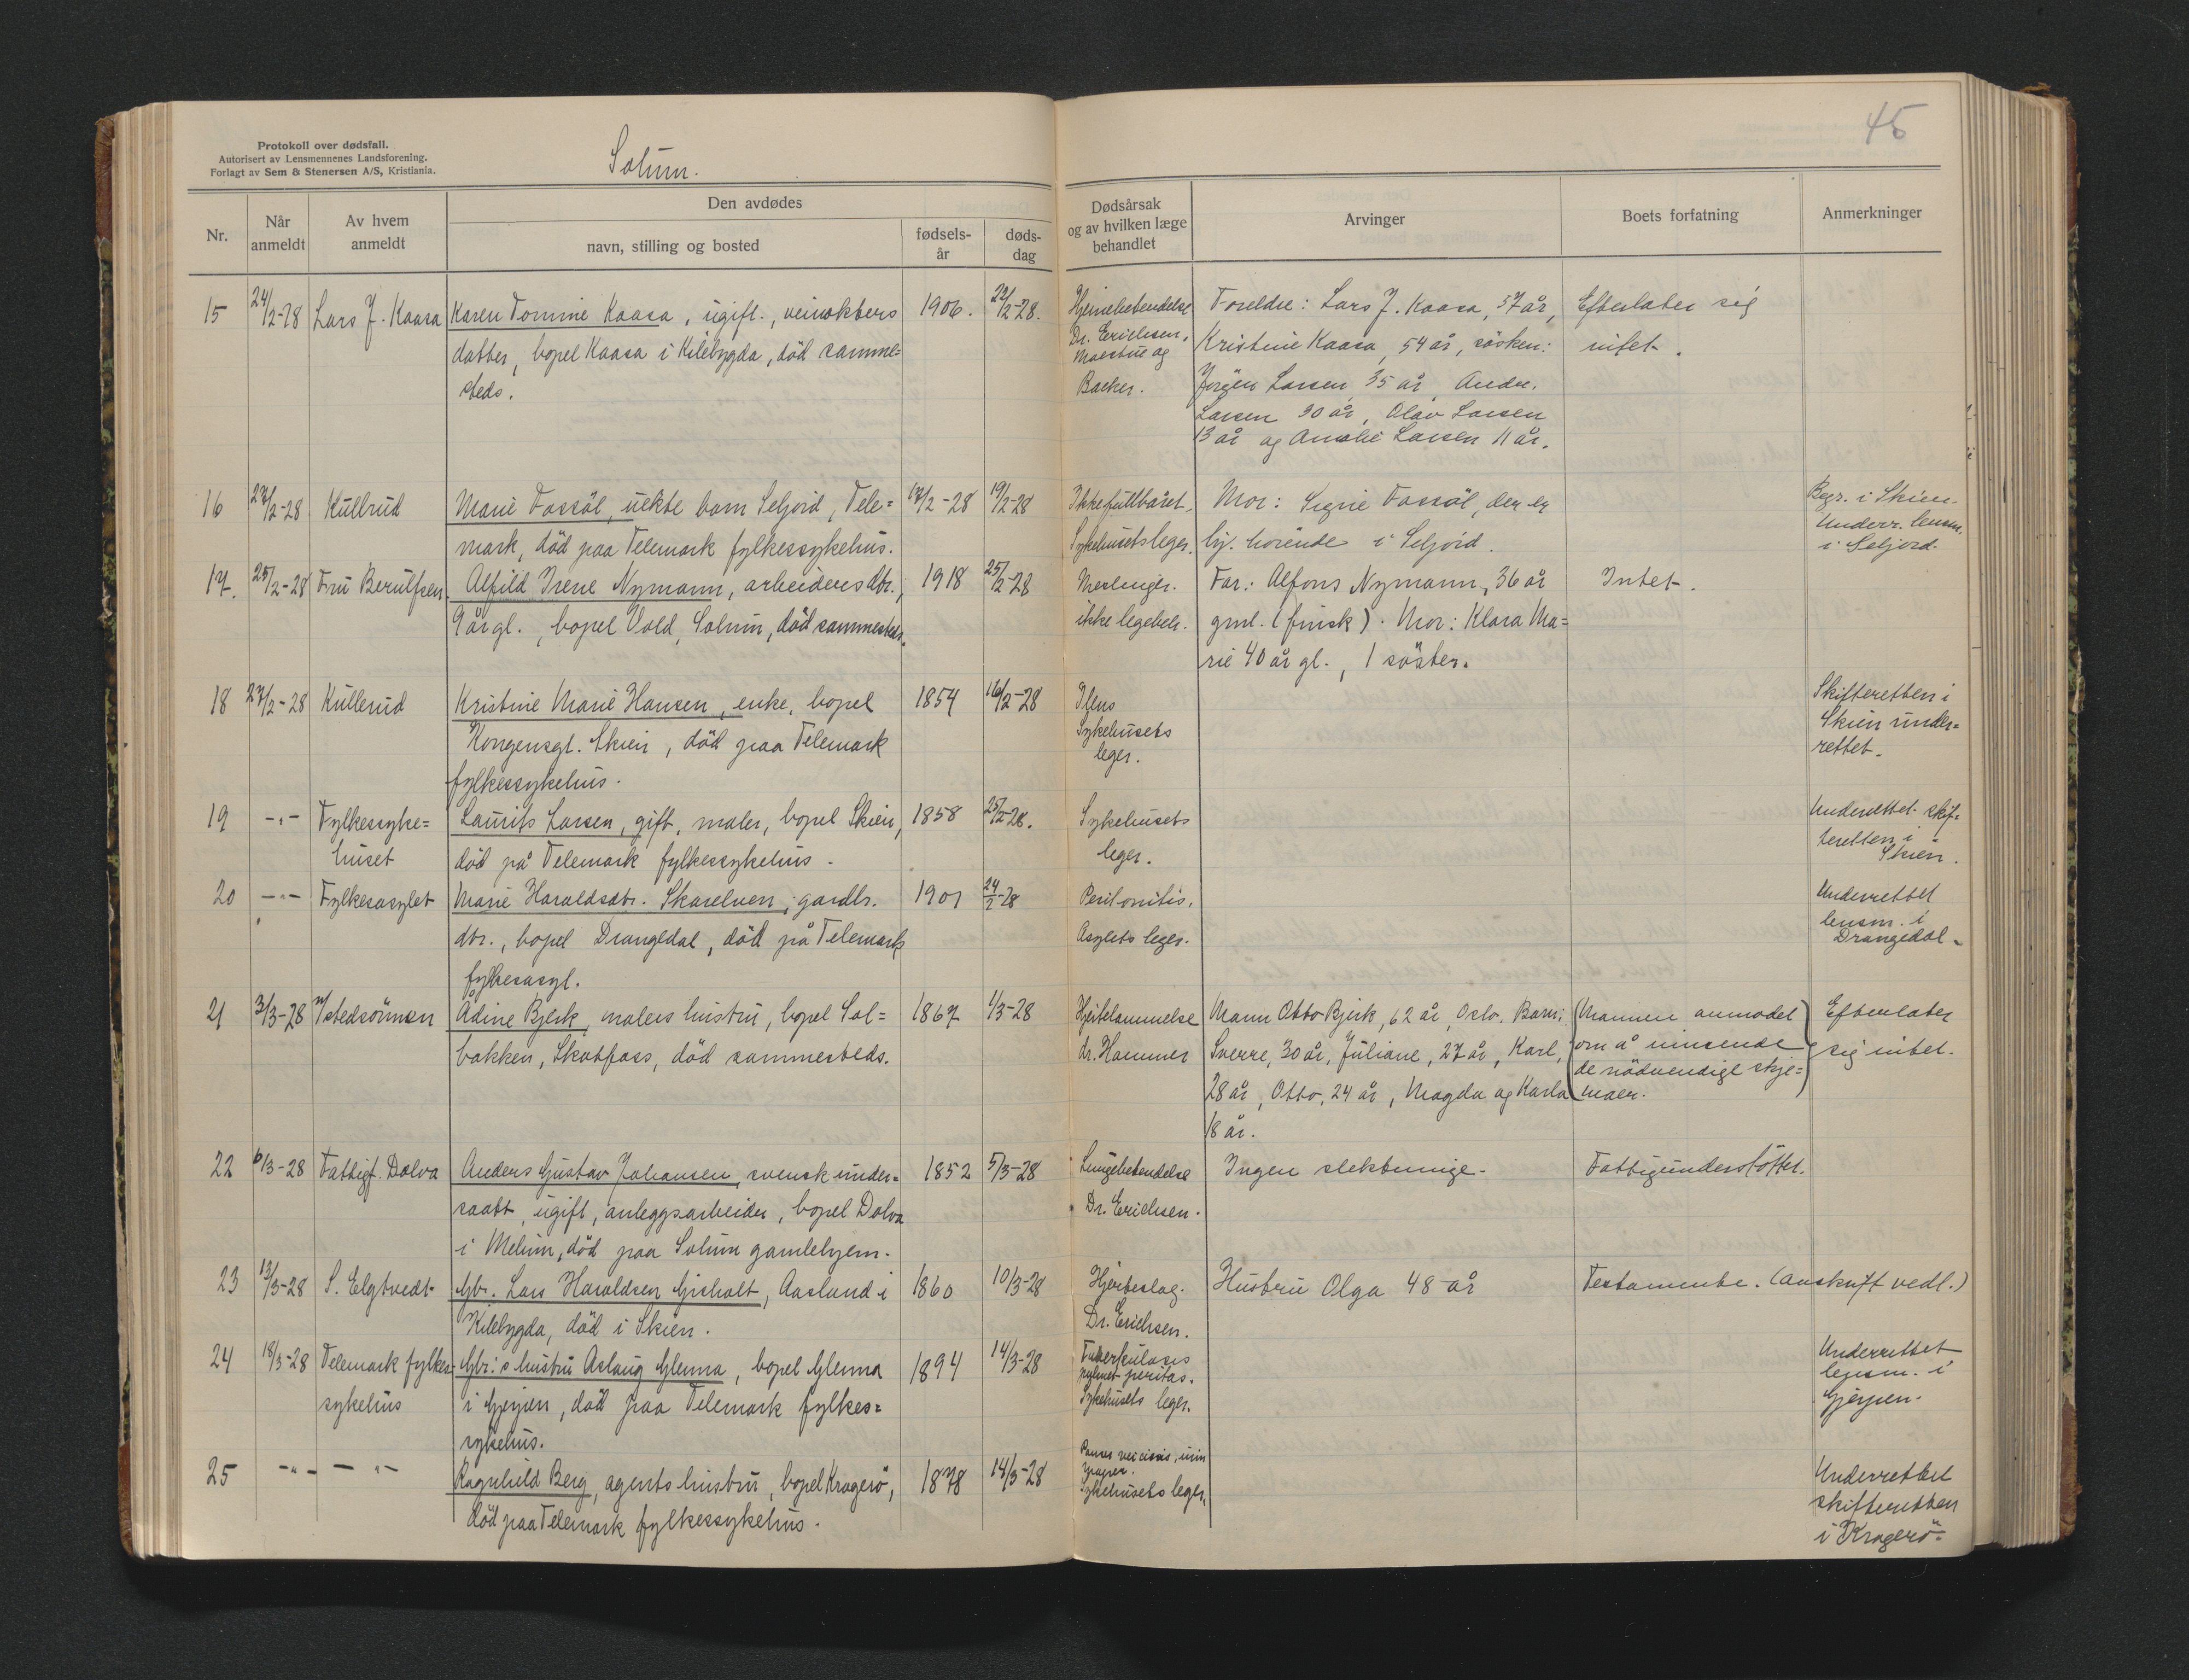 Protokoll over dødsfall.
Autorisert av Lensmennenes Landsforening.
Forlagt av Sem & Stenersen A/S, Kristiania.
Solum.
45
Nr.
Når anmeldt
Av hvem anmeldt
Den avdødes
navn, stilling og bosted
fødsels-år
døds-dag
Dødsårsak og av hvilken læge behandlet
Arvinger
Boets forfatning
Anmerkninger
15 24/2-28 Lars J. Kaasa Karen Tomine Kaasa, ugift., veivokters 1906. 22/2-28. Hjernebetendelse Foreldre: Lars J. Kaasa, 57 år, Efterlater sig
datter, bopel Kaasa i Kilebygda, död samme= Dr. Erichsen, Kristine Kaasa, 54 år, søsken: intet.
steds. Moestue og Backer. Jörgen Larsen 35 år, Andr.
Larsen 30 år, Olav Larsen
13 år og Amalie Larsen 11 år.
16 27/2-28 Kullrud Marie Fossöl, uekte barn Seljord, Tele= 17/2-28 19/2-28 Ikke fullbåret. Mor: Signe Fossöl, der er Begr. i Skien.
mark, död paa Telemark fylkessykehus. Sykehusets leger. hj. hörende i Seljord. Underr. lensm. i Seljord.
17. 25/2-28 Fru Berulfsen Alfild Irene Nymann, arbeiders dtr., 1918 25/2-28 Meslinger. Far: Alfons Nymann, 36 år Intet.
9 år gl., bopel Vold, Solum, död sammesteds. ikke legebeh. gml. (finsk). Mor: Klara Ma=
rie 40 år gl., 1 söster.
18 27/2-28 Kullerud Kristine Marie Hansen, enke, bopel 1854 16/2-28 Ilens Skifteretten i
Kongensgt. Skien, död paa Telemark Sykehusets Skien under=
fylkessykehus. leger. rettet.
19 -"- Fylkessyke= Laurits Larsen, gift, maler, bopel Skien, 1858 25/2-28. Sykehusets Underrettet skif=
huset död på Telemark fylkessykehus. leger. teretten i Skien.
20 -"- Fylkesasylet Marie Haraldsdtr. Skarelven, gardbr. 1901 24/2-28 Peritonitis. Underrettet
dtr., bopel Drangedal, död på Telemark Asylets leger. lensm. i Drangedal.
fylkesasyl.
21 3/3-28 m/stedsönnen Adine Bjerk, malers hustru, bopel Sol= 1867 1/3-28 Hjertelammelse Mann Otto Bjerk, 62 år, Oslo. Barn: (Mannen anmodet Efterlater
bakken, Skotfoss, död sammesteds. dr. Hammer Sverre, 30 år, Juliane, 27 år, Karl, om å innsende sig intet.
28 år, Otto, 24 år, Magda og Karla de nödvendige skje=
18 år. maer.
22 6/3-28 Fattigf. Dolva Anders Gustav Johansen, svensk under= 1852 5/3-28 Lungebetendelse Ingen slektninge. Fattigunderstöttet.
saatt, ugift, anleggsarbeider, bopel Dolva Dr. Erichsen.
i Melum, död paa Solum gamlehjem.
23 13/3-28 S. Elgtvedt Gbr. Lars Haraldsen Gisholt, Aasland i 1860 10/3-28 Hjerteslag. Hustru Olga 48 år Testamente. (avskrift vedl.)
Kilebygda, död i Skien. Dr. Erichsen.
24 18/3-28 Telemark fylkes= Gbr:s hustru Aslaug Glenna, bopel Glenna 1894 14/3-28 Tuberkulosis Underrettet
sykehus i Gjerpen, död paa Telemark fylkes= Sykehusets leger. lensm. i
sykehus. Gjerpen.
25 -"- -"- Ragnhild Berg, agents hustru, bopel Kragerö, 1878 14/3-28 Sykehusets leger. Underrettet
död paa Telemark fylkessykehus. skifteretten
i Kragerö.